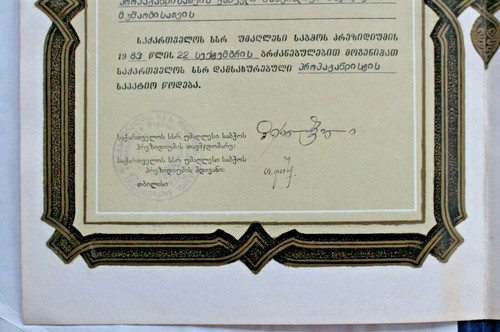 მუშაობისათვის
საქართველოს სსრ უმაღლესი საბჭოს პრეზიდიუმის
1983 წლის 22 სექტემბრის ბრძანებულებით მოგენიჭათ
საქართველოს სსრ დამსახურებული პროპაგანდისტის
საპატიო წოდება.
საქართველოს სსრ უმაღლესი საბჭოს
პრეზიდიუმის თავმჯდომარე:
საქართველოს სსრ უმაღლესი საბჭოს
პრეზიდიუმის მდივანი:
თბილისი